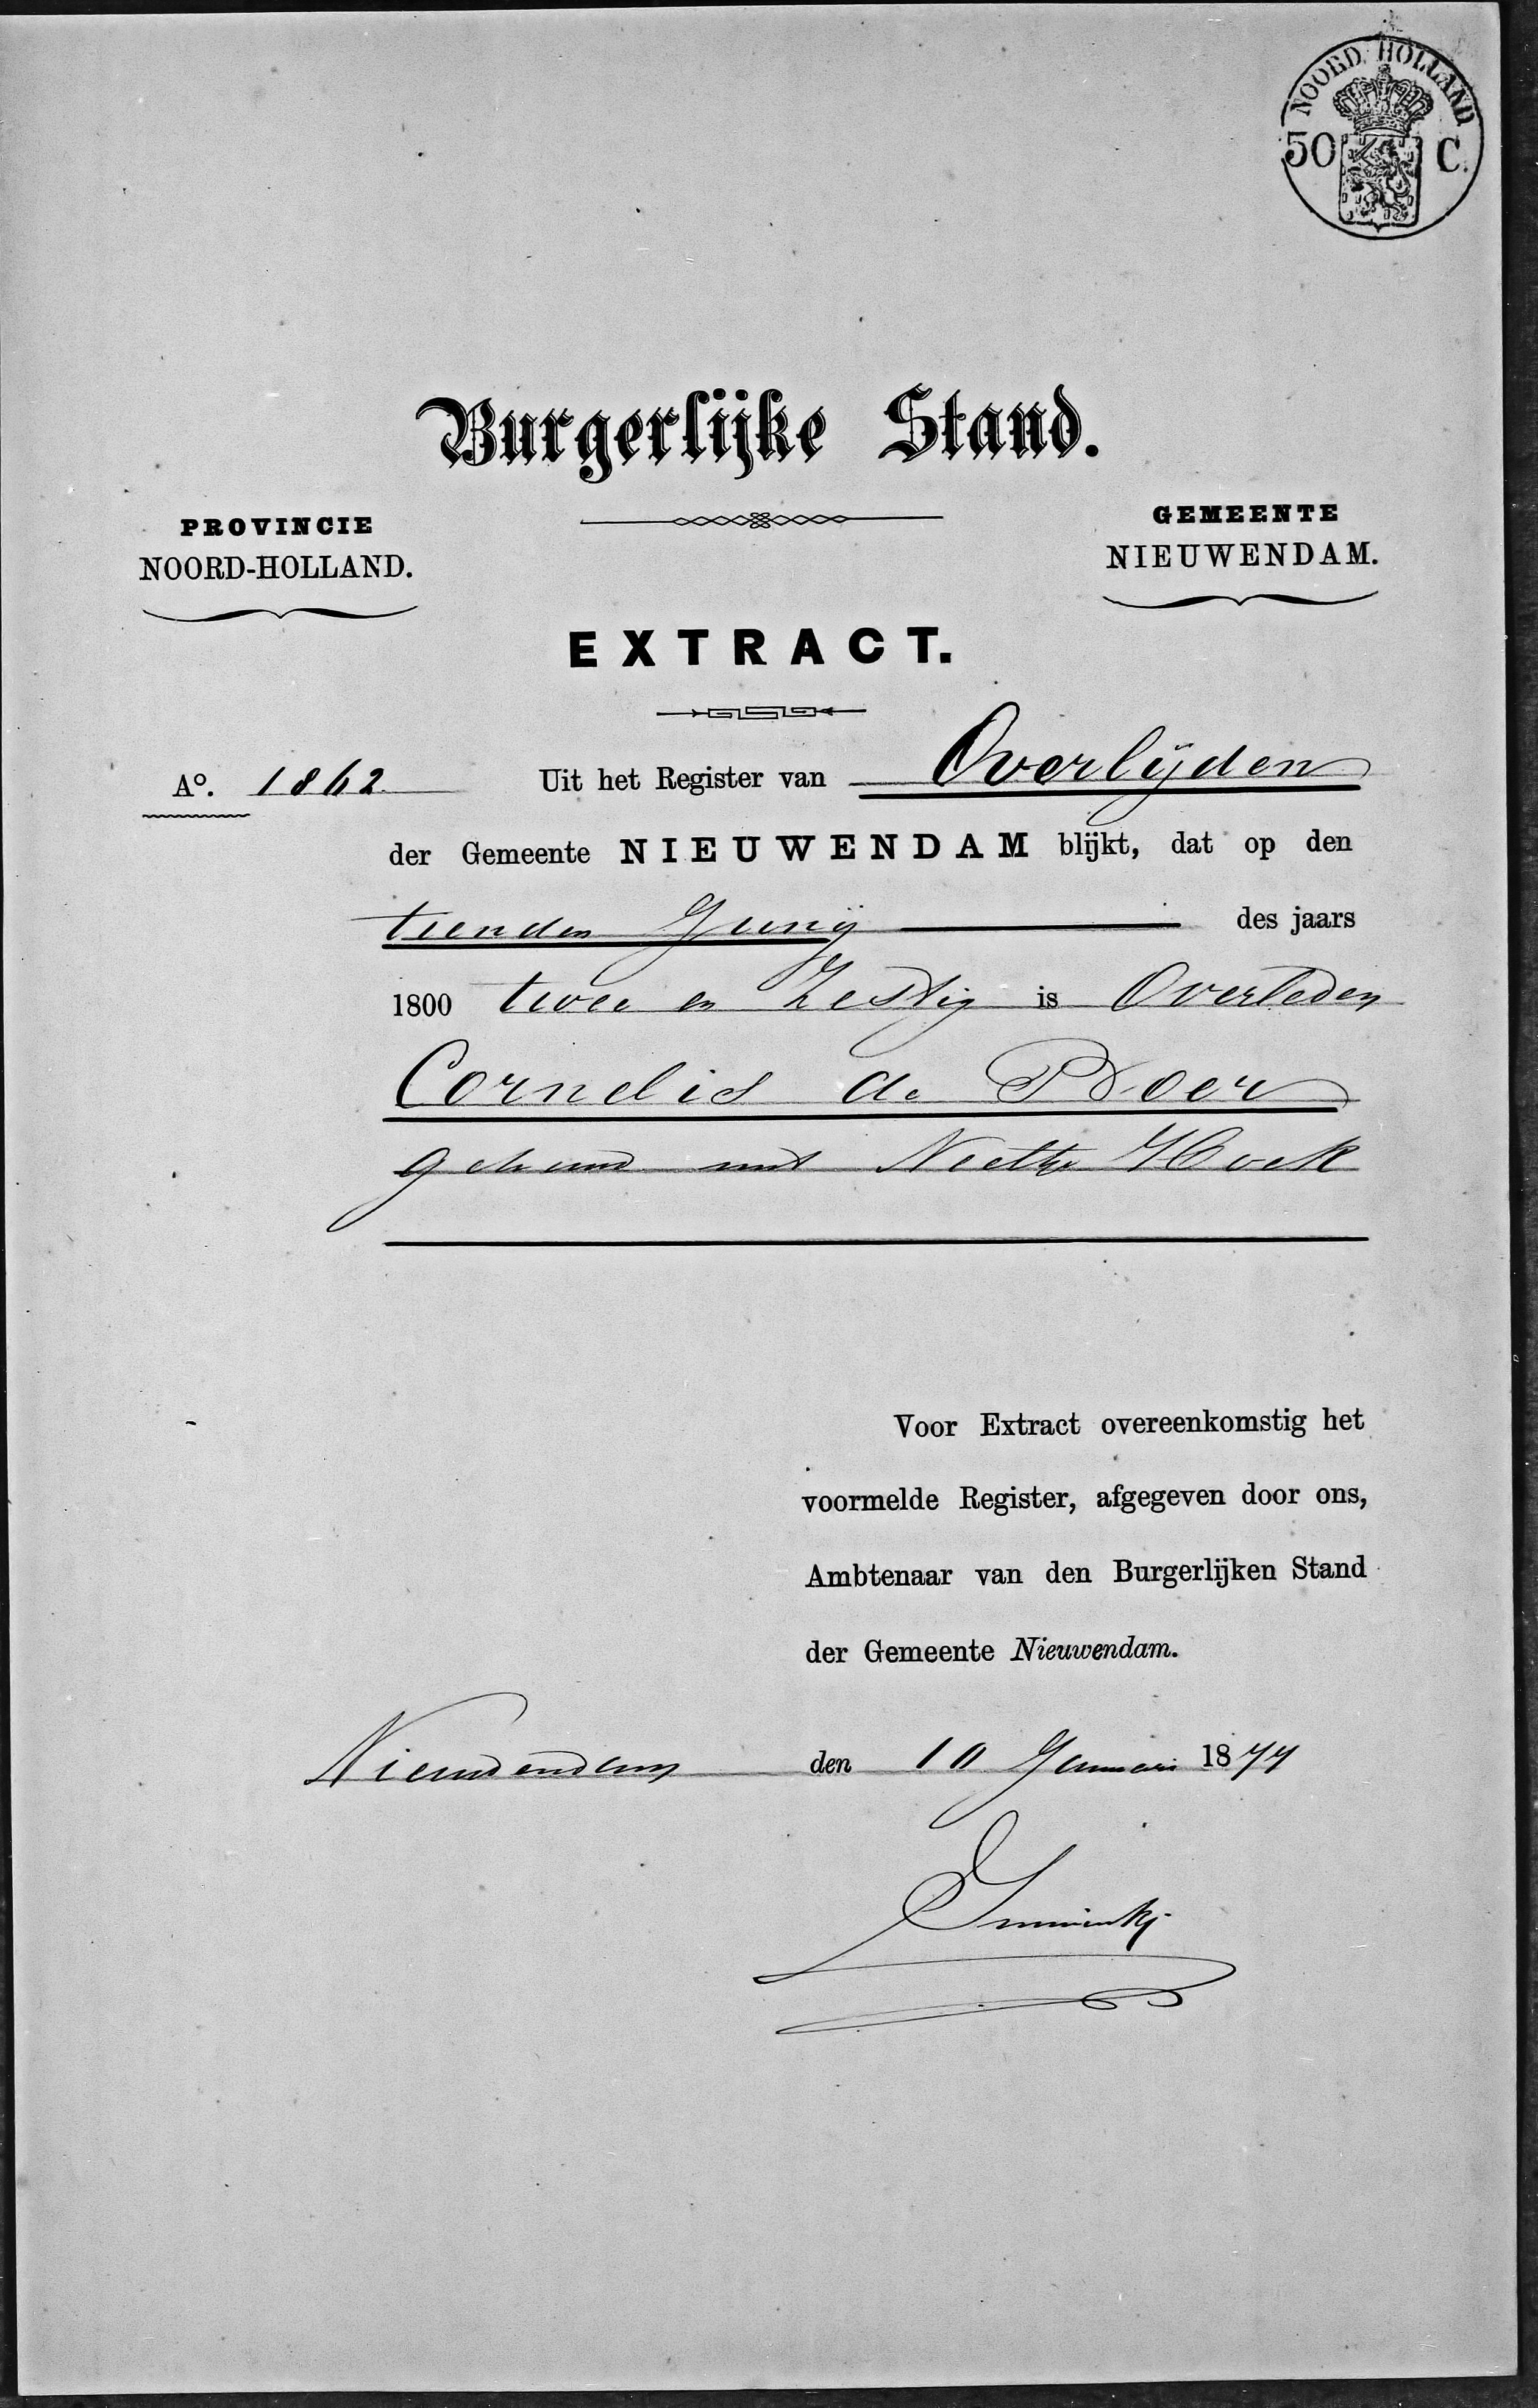 NOORD. HOLLAND
50 C.
Burgerlijke Stand.
PROVINCIE
NOORD-HOLLAND.
GEMEENTE
NIEUWENDAM.
EXTRACT.
Aº. 1862 Uit het Register van Overlijden
der Gemeente NIEUWENDAM blijkt, dat op den
tienden Junij des jaars
1800 twee en Zestig is Overleden
Cornelis de Boer
gehuwd met Neeltje Hoek
Voor Extract overeenkomstig het
voormelde Register, afgegeven door ons,
Ambtenaar van den Burgerlijken Stand
der Gemeente Nieuwendam.
Nieuwendam den 10 Januari 1877